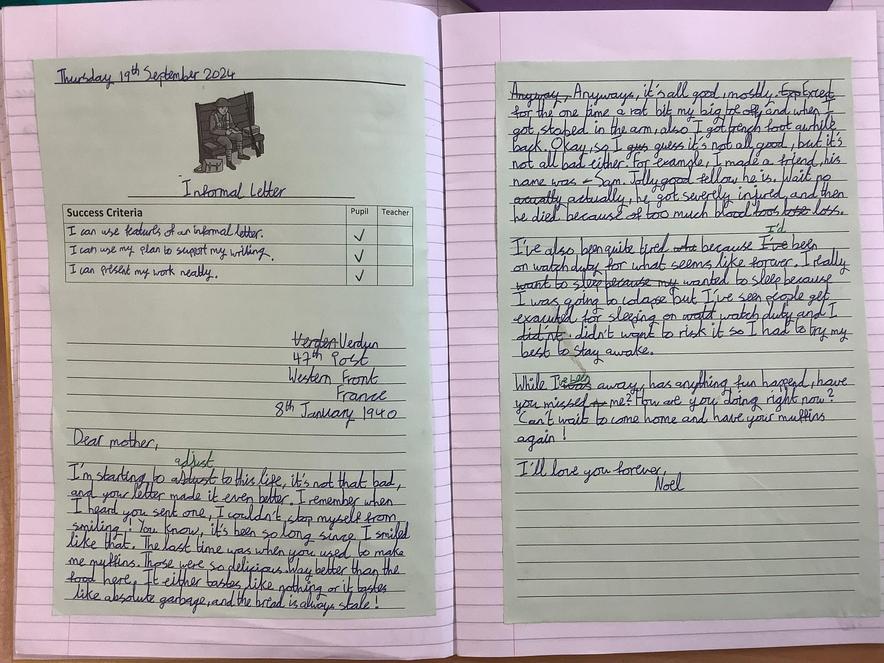 Thursday 19th September 2024
Informal Letter
Success Criteria Pupil Teacher
I can use features of an informal letter. ✓
I can use my plan to support my writing. ✓
I can present my work neatly. ✓
Verden Verdun
47th Post
Western Front
France
8th January 1940
Dear mother,
adjust
I'm starting to adjust to this life, it's not that bad,
and your letter made it even better. I remember when
I heard you sent one, I couldn't stop myself from
smiling! You know, it's been so long since I smiled
like that. The last time was when you used to make
me muffins. Those were so delicious. Way better than the
food here. It either tastes like nothing or it tastes
like absolute garbage, and the bread is always stale!
Anyway, Anyways, it's all good, mostly. Exp Except
for the one time a rat bit my big toe off, and when I
got stabed in the arm, also I got trench foot awhile
back. Okay, so I gus guess it's not all good, but it's
not all bad either. For example, I made a friend, his
name was Sam. Jolly good fellow he is. Wait no
acually actually, he got severely injured, and then
he died because of too much blood loss.
I'd
I've also been quite tired because I've been
on watch duty for what seems like forever. I really
want to sleep because my wanted to sleep because
I was going to colapse but I've seen people get
executed for sleeping on watch duty and I
did'nt didn't want to risk it so I had to try my
best to stay awake.
While I've been away, has anything fun happend, have
you missed me? How are you doing right now?
Can't wait to come home and have your muffins
again!
I'll love you forever,
Noel